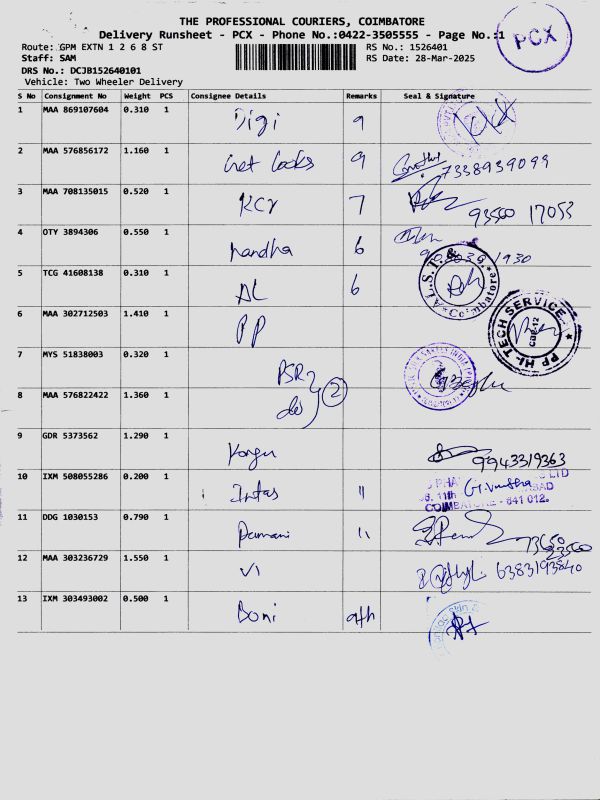 THE PROFESSIONAL COURIERS, COIMBATORE
Delivery Runsheet - PCX - Phone No.:0422-3505555 - Page No.:1
PCX
Route: GPM EXTN 1 2 6 8 ST
RS No.: 1526401
Staff: SAM
RS Date: 28-Mar-2025
DRS No.: DCJB152640101
Vehicle: Two Wheeler Delivery
S No Consignment No Weight PCS Consignee Details Remarks Seal & Signature
1 MAA 869107604 0.310 1 Digi 9
2 MAA 576856172 1.160 1 9 7338939099
3 MAA 708135015 0.520 1 KCR 7 93560 17053
4 OTY 3894306 0.550 1 Nandha 6
5 TCG 41608138 0.310 1 AL 6
Coimbatore
6 MAA 302712503 1.410 1 PP
PP HI-TECH SERVICE
CBE-12
7 MYS 51838003 0.320 1 PSR
2
8 MAA 576822422 1.360 1
9 GDR 5373562 1.290 1 Kongu 9943319363
10 IXM 508055286 0.200 1 Intas 11
LTD
11th
COIMBATORE - 641 012.
11 DDG 1030153 0.790 1 11
12 MAA 303236729 1.550 1 VI 6383193840
13 IXM 303493002 0.500 1 Boni 9th